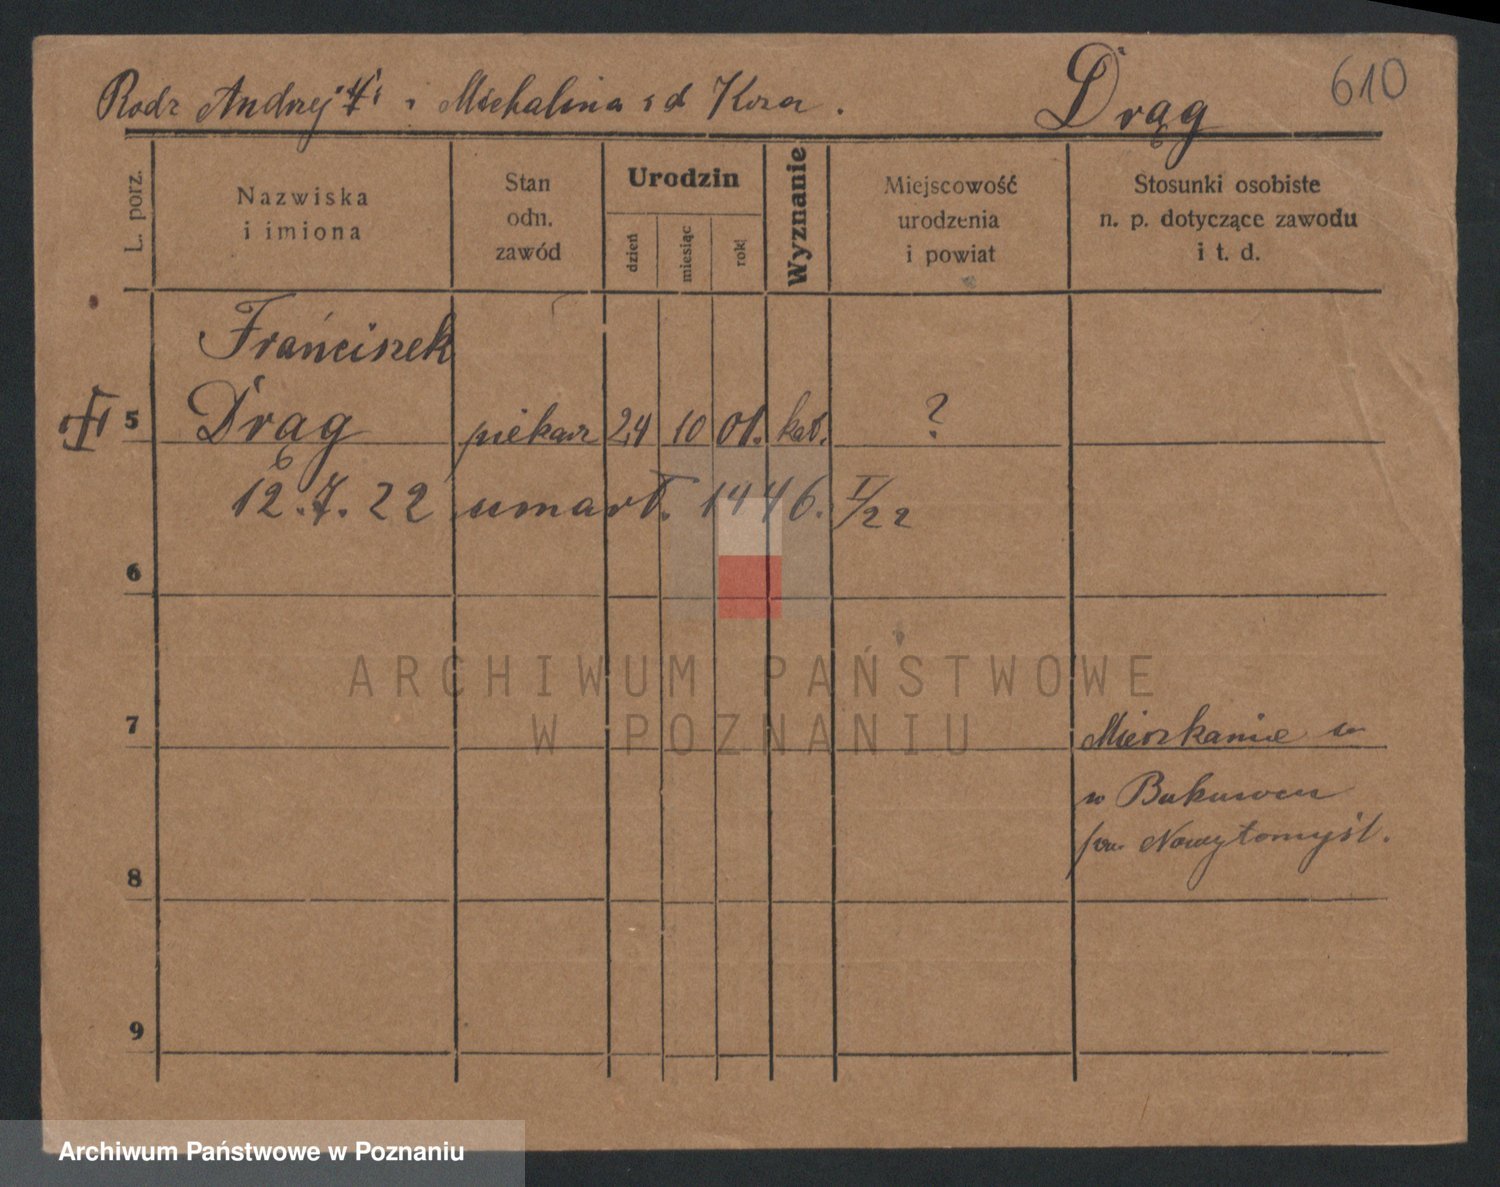 610
Rodz Andrzej i Michalina z d Koza. Drąg
L. porz.
Nazwiska
i imiona
Stan
odn.
zawód
Urodzin
dzień
miesiąc
rok
Wyznanie
Miejscowość
urodzenia
i powiat
Stosunki osobiste
n. p. dotyczące zawodu
i t. d.
Franciszek
5 Drąg piekarz 24 10 01. kat. ?
12.7.22 umarł. 1446. I/22
6
ARCHIWUM PAŃSTWOWE
W POZNANIU
7 Mieszkanie
w Bukowcu
pow Nowytomyśl.
8
9
Archiwum Państwowe w Poznaniu